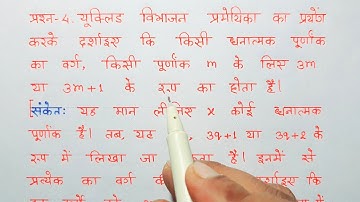 प्रश्न-4. यूक्लिड विभाजन प्रमेयिका का प्रयोग
करके दर्शाइए कि किसी धनात्मक पूर्णांक
का वर्ग, किसी पूर्णांक m के लिए 3m
या 3m+1 के रूप का होता है।
[संकेतः यह मान लीजिए x कोई धनात्मक
पूर्णांक है। तब, यह 3q+1 या 3q+2 के
रूप में लिखा जा है। इनमें से
प्रत्येक का वर्ग दर्शाइए कि